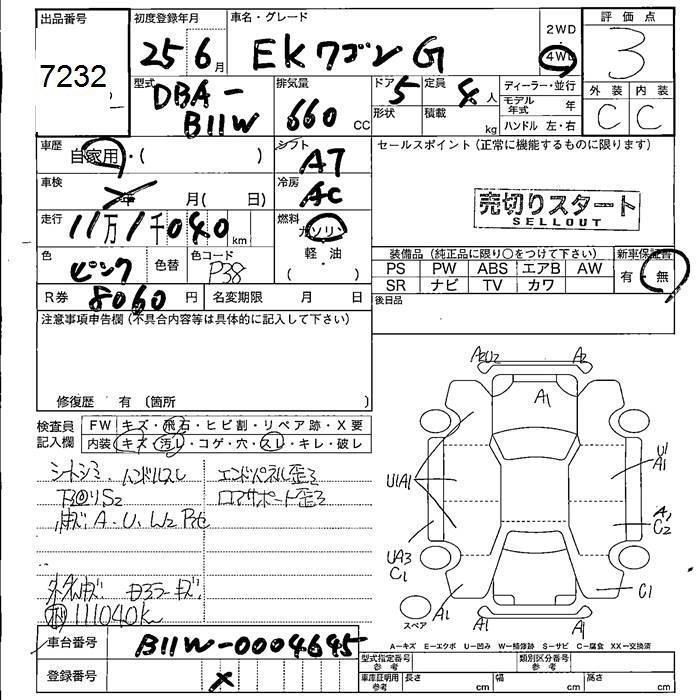 出品番号 初度登録年月 車名・グレード 2WD 評価点
7232 25 6月 EKワゴン G 4WD 3
型式 排気量 ドア 定員 ディーラー・並行 外装 内装
DBA-B11W 660 CC 5 4人 モデル年式 年 C C
形状 積載 kg ハンドル 左・右
車歴 自家用・( ) シフト AT セールスポイント(正常に機能するものに限ります)
車検 年 月( 日) 冷房 AC
売切りスタート
SELLOUT
走行 11万1千040km 燃料 ガソリン
軽・油
・( )
色 ピンク 色替 色コード P38
装備品(純正品に限り○をつけて下さい) 新車保証書
PS PW ABS エアB AW 有・無
SR ナビ TV カワ
R券 8060円 名変期限 月 日 後日品
注意事項申告欄(不具合内容等は具体的に記入して下さい)
修復歴 有 (箇所 )
検査員記入欄 FW キズ・飛石・ヒビ割・リペア跡・X要
内装 キズ・汚し・コゲ・穴・スレ・キレ・破し
シートシミ、ハンドルスレ エンドパネル歪ミ
下回りS2 コアサポート歪ミ
A・U・W2
111040km
A2U2 A2
A1
U1A1 U1 A1
A1 C2
UA3 C1 C1
A1 A1
スペア
A1 A1
A=キズ E=エクボ U=凹み W=補修跡 S=サビ C=腐食 XX=交換済
車台番号 B11W-0004645
型式指定番号 参考 類別区分番号 参考
登録番号 X
車庫証明用 参考 長さ cm 幅 cm 高さ cm